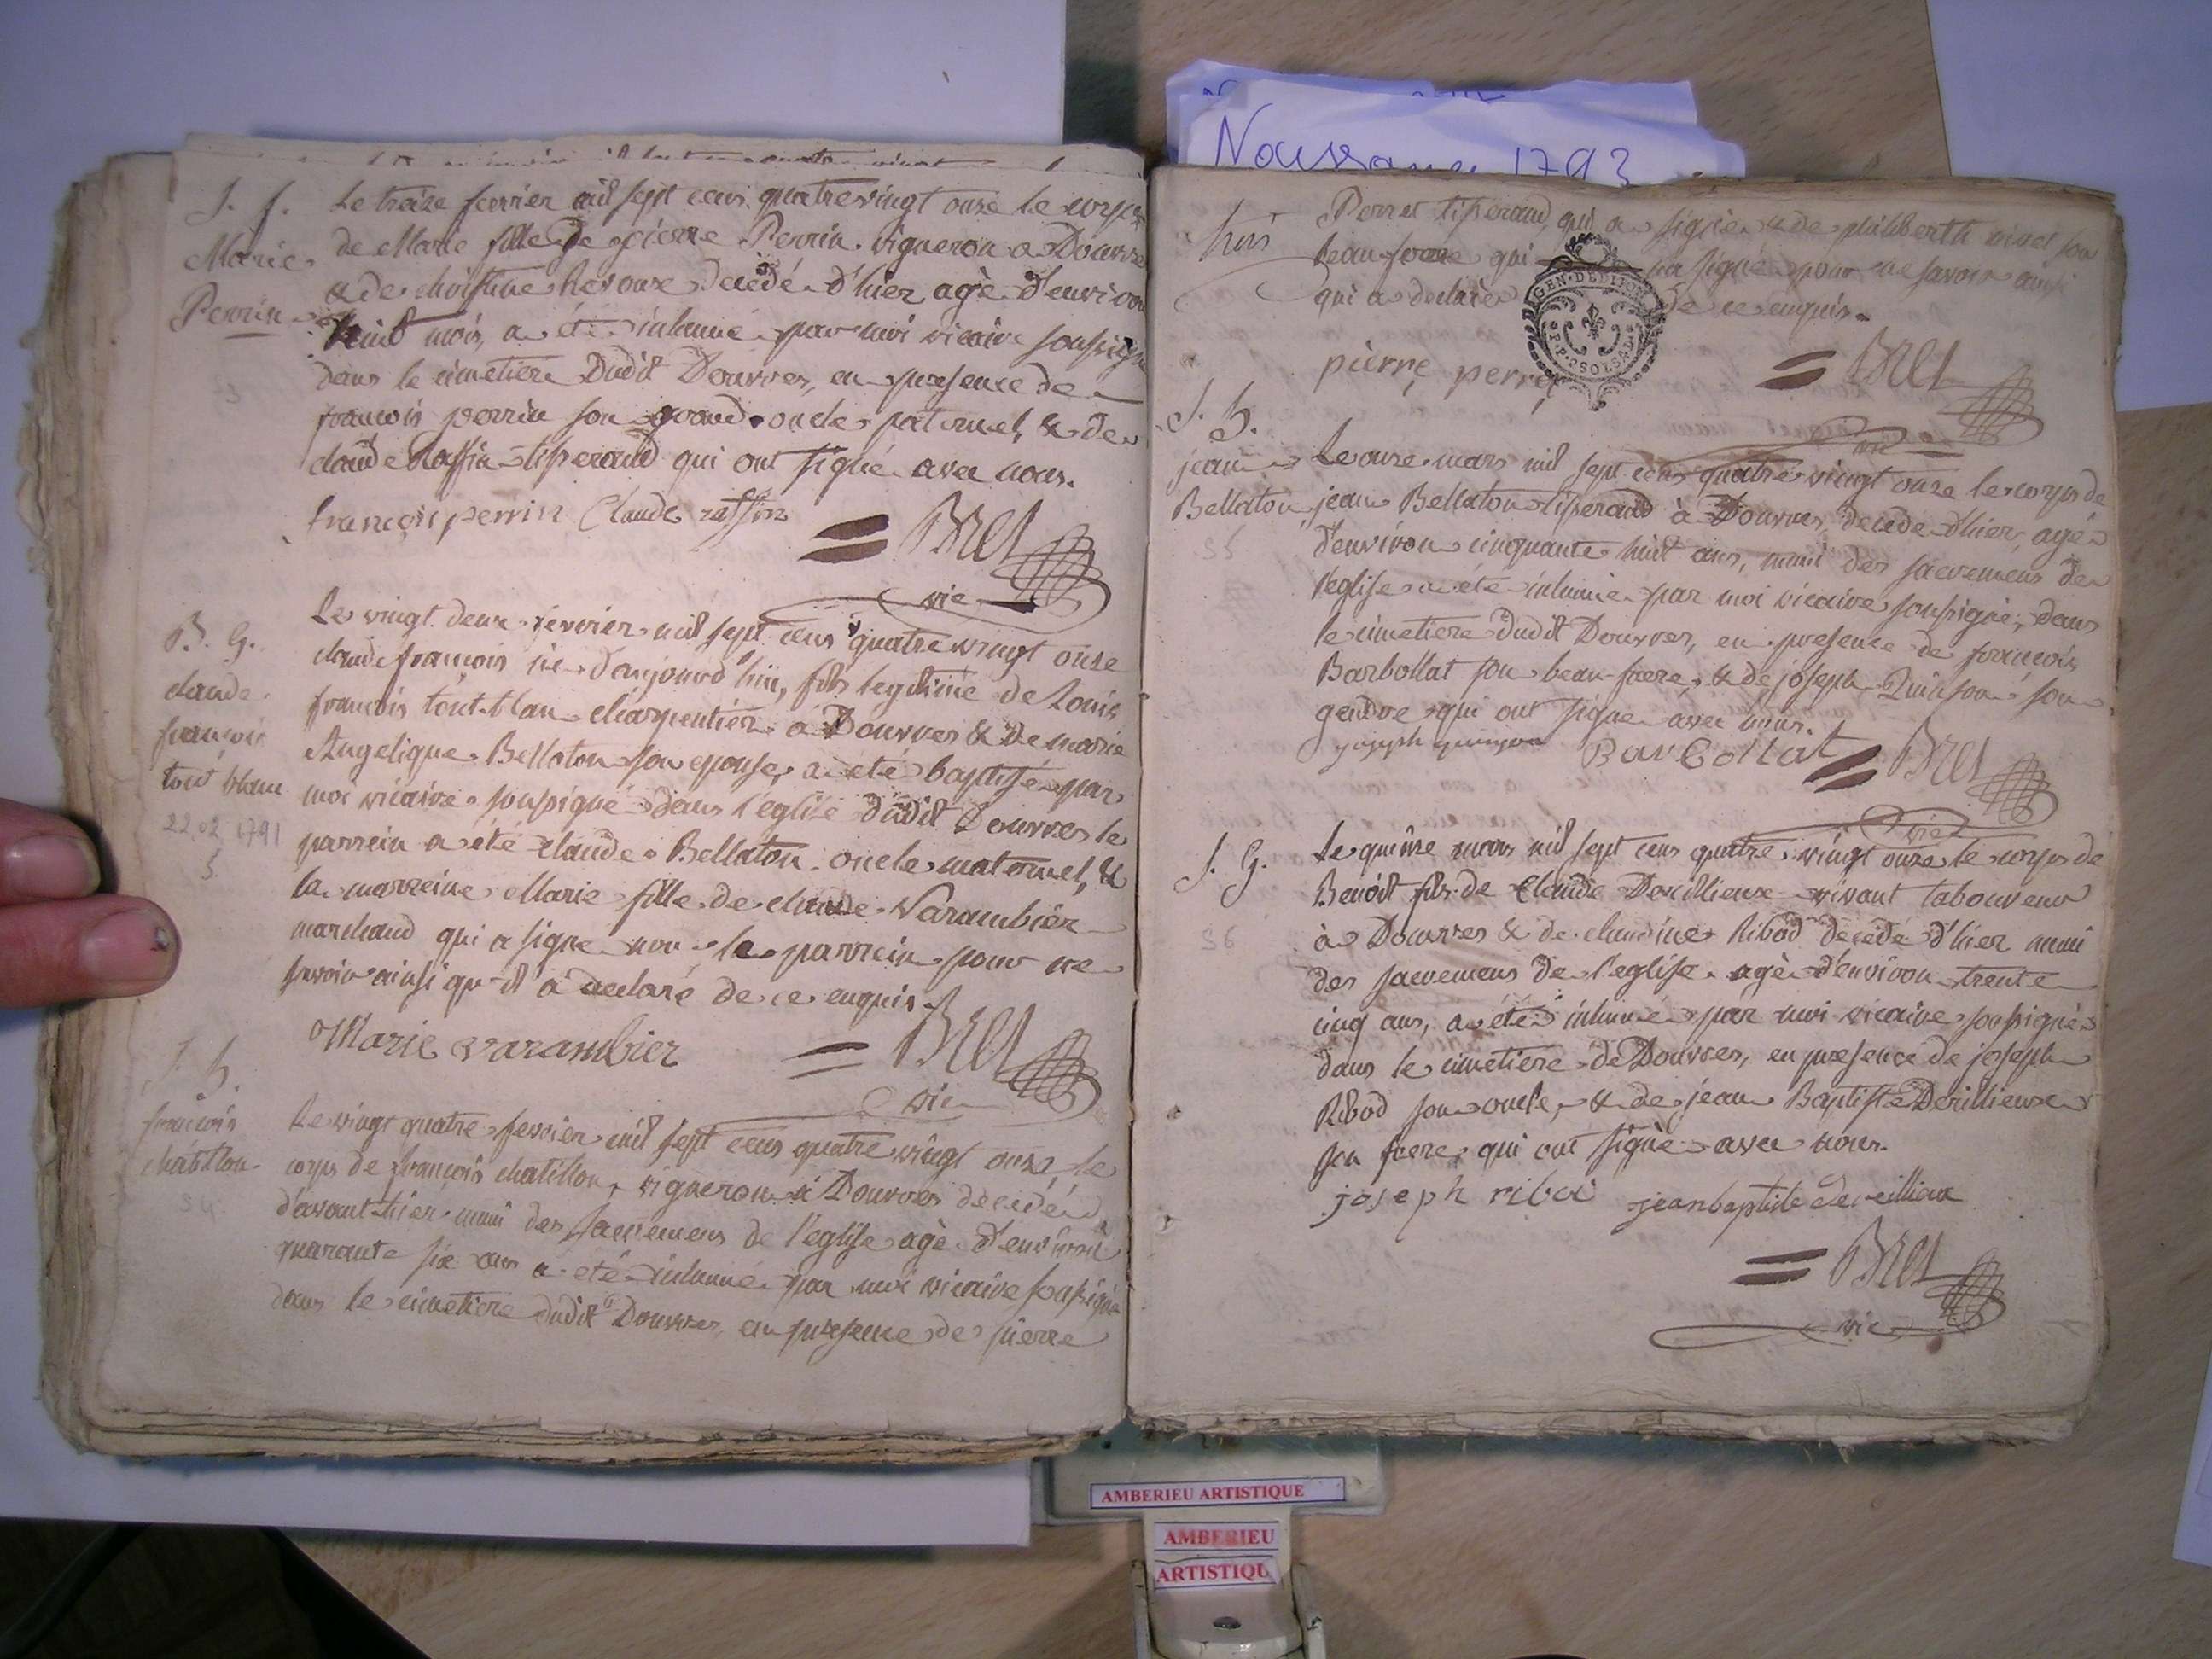 S. f.
Marie
Perrin
Le treize fevrier mil sept cens quatrevingt onze le corps
de Marie fille de pierre Perrin vigneron a Douvres
& de christine Ravoux decedé d'hier agè d'environ
huit mois, a été inhumé par moi vicaire soussigné
dans le cimetiere dudit Douvres, en presence de
francois perrin son grand oncle paternel, & de
claude Raffin tisserand qui ont signé avec nous.
francois perrin Claude raffin
= Bret
vic
B. G.
claude
francois
tout blanc
22 02 1791
5
Le vingt deux fevrier mil sept cens quatre vingt onze
claude francois né d'aujourd'hui, fils legitime de Louis
francois tout-blanc charpentier à Douvres & de marie
Angelique Bellaton son epouse, a été baptisé par
moi vicaire soussigné dans l'eglise dudit Douvres le
parrein a été claude Bellaton oncle maternel, &
la marreine Marie fille de claude Varambier
marchand qui a signé non le parrein pour ne
savoir ainsi qu'il a declaré de ce enquis.
Marie varambier
= Bret
vic
S. h.
francois
chatillon
34
Le vingt quatre fevrier mil sept cens quatre vingt onze, le
corps de francois chatillon, vigneron à Douvres decedé
d'avant-hier muni des sacremens de l'eglise agè d'environ
quarante six ans a été inhumé par moi vicaire soussigné
dans le cimetiere dudit Douvres, en presence de pierre
Nouss 1793
Perret tisserand, qui a signé & de philiberth vivet son
beau frere qui pas signé pour ne savoir ainsi
qui a declaré de ce enquis.
GEN. DE LYON
P.P. 2 SOLS 4 D.
pierre perret
= Bret
vic
S. h.
jean
Bellaton
35
Le onze mars mil sept cens quatre vingt onze le corps de
jean Bellaton tisserand à Douvres, decede d'hier, agé
d'environ cinquante huit ans, muni des sacremens de
l'eglise a été inhumé par moi vicaire soussigné, dans
le cimetiere dudit Douvres, en presence de francois
Barbollat son beau-frere, & de joseph Quinson son
gendre qui ont signé avec nous.
joseph quinson Barbollat = Bret
vic
S. G.
36
Le quinze mars mil sept cens quatre vingt onze le corps de
Benoit fils de Claude Deveillieux vivant laboureur
à Douvres & de claudine Ribod decedé d'hier muni
des sacremens de l'eglise agè d'environ trente
cinq ans, a été inhumé par moi vicaire soussigné
dans le cimetiere de Douvres, en presence de joseph
Ribod son oncle, & de jean Baptiste Deveillieux
son frere qui ont signé avec nous.
joseph ribod jeanbaptiste deveillieux
= Bret
vic
AMBERIEU ARTISTIQUE
AMBERIEU
ARTISTIQU